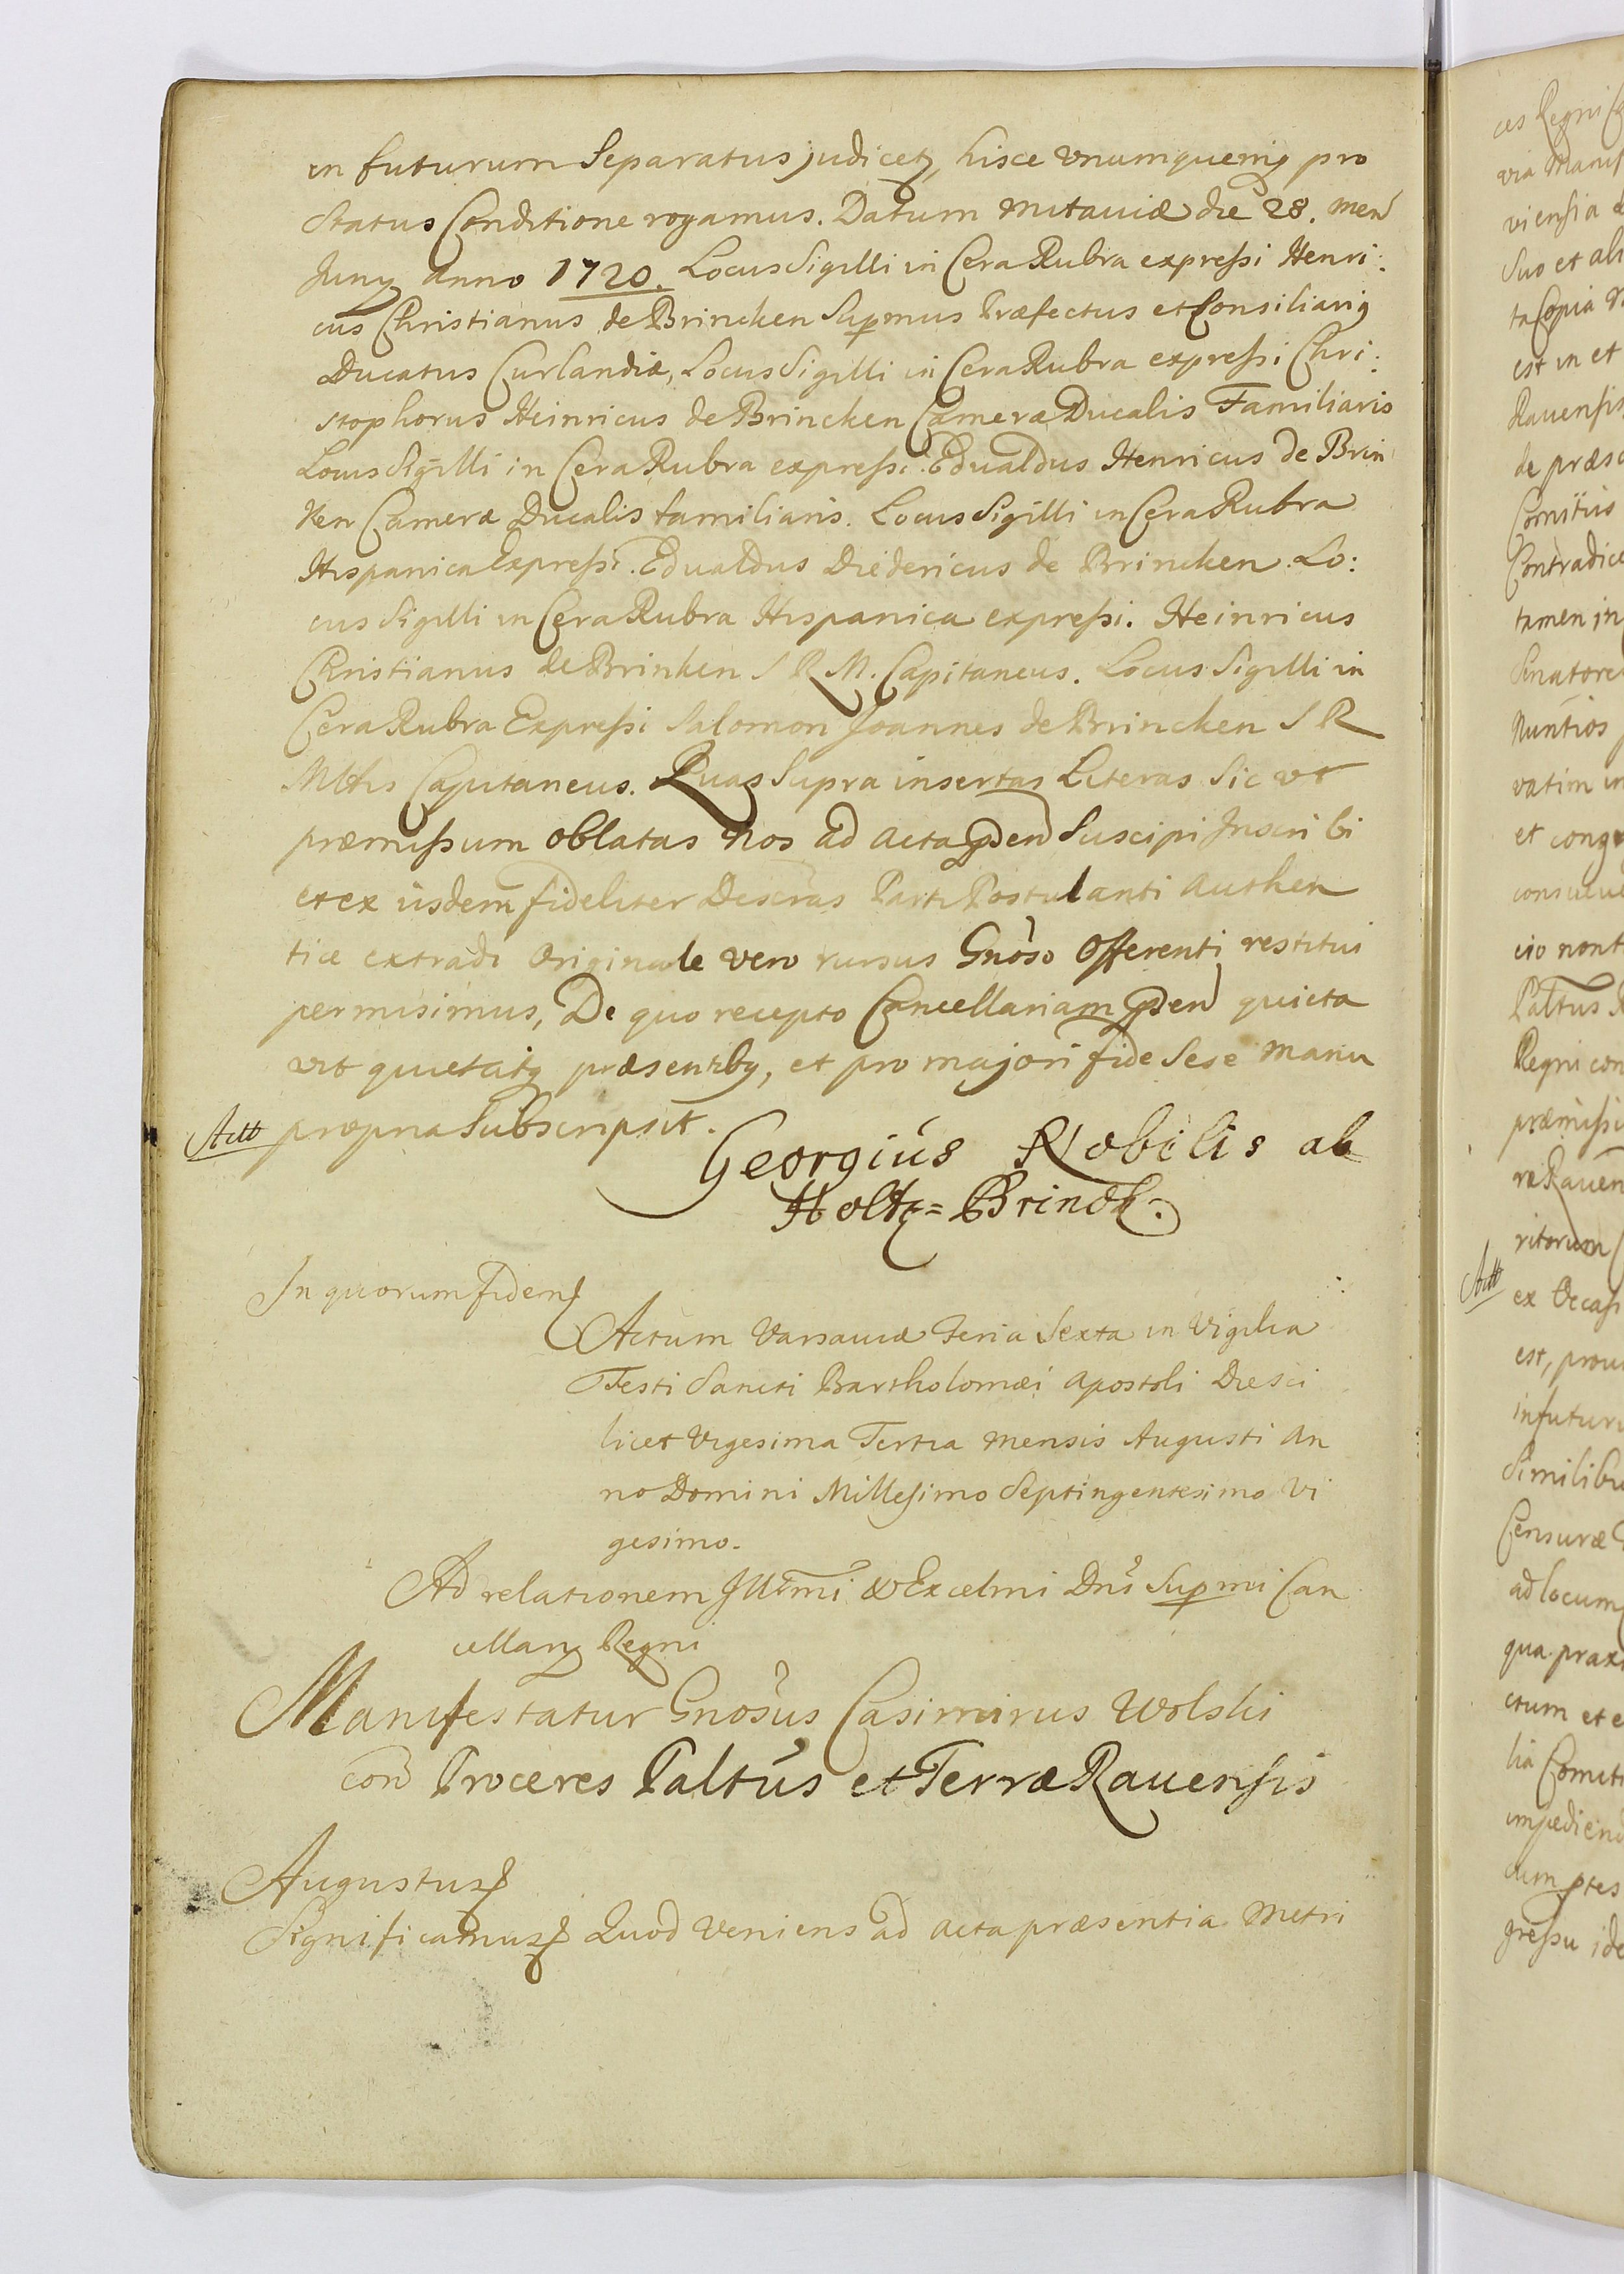 in futurum Separatus judicetʒ, hisce vnumquemqʒ pro
Status Conditione rogamus. Datum Mitauiæ die 28. men
Junÿ Anno 1720. Locus Sigilli in Cera Rubra expreſsi Henri:
cus Christianus de Brincken Supmus Præfectus et Consiliariʒ
Ducatus Curlandiæ, Locus Sigilli in Cera Rubra expreſsi Chri:
stophorus Heinricus de Brincken Cameræ Ducalis Familiaris
Locus Sigilli in Cera Rubra expreſsi. Edualdus Henricus de Brin
ken Cameræ Ducalis familiaris. Locus Sigilli in Cera Rubra
Hispanica Expreſsi. Edualdus Diedericus de Brincken. Lo:
cus Sigilli in Cera Rubra Hispanica expreſsi. Heinricus
Christianus de Brinken S R M. Capitaneus. Locus Sigilli in
Cera Rubra Expreſsi Salomon Joannes de Brincken S R
Mttis Capitaneus. Quas Supra insertas Literas Sic vt
præmiſsum oblatas Nos ad Acta pñsen Suscipi Inscribi
et ex iisdem fideliter Descrãs Parti Postulanti Authen
tice extradi Originale vero rursus Gnõso Offerenti restitui
permisimus, De quo recepto Cancellariam pñsen quieta
vit quietatqʒ præsentibʒ, et pro majori fide Sese manu
Actt propria Subscripsit.
Georgiús Nobilis ab
Holtz=Brinck:
In quorum fidem
Actum Varsauiæ Feria Sexta in Vigilia
Festi Sancti Bartholomæi Apostoli Die Sci
licet Vigesima Tertia Mensis Augusti An
no Domini Milleſimo Septingentesimo Vi
gesimo.
Ad relationem Illtmi & Excelmi Dnĩ Supmi Can
cellarÿ Regni
Manifestatur Gnõsus Casimirus Wolski
con Proceres Paltûs et Terræ Rauenſis
Augustus
Significamus Quod Veniens ad Acta præsentia Metri
ces Regni
via Manif
viensia
Suo et ali
ta Copia
est in et
Rauenſis
de præs
Comitiis
Contradic
tamen in
Senatore
Nuntios
vatim in
et cong
consueu
cio non
Paltus
Regni con
præmiſsi
ræ Rauen
ritorum
Actt ex Occaſi
est, prou
in futuru
Similibu
Censuræ
ad locum
qua prax
ctum et e
lia Comiti
impedien
dum ptes
greſsu ide